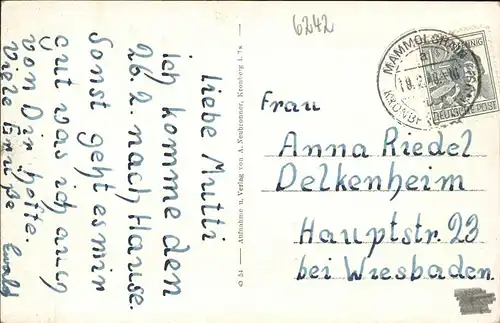 6242
liebe Mutti
ich komme den
26. 2. nach Hause.
Sonst geht es mir
gut was ich auch
von Dir hoffe.
Viele Grüße
Ewald
O 54 — Aufnahme u. Verlag von A. Neubronner, Kronberg i. Ts
MAMMOLSHAIN
DEUTSCHE POST
Frau
Anna Riedel
Delkenheim
Hauptstr. 23
bei Wiesbaden.